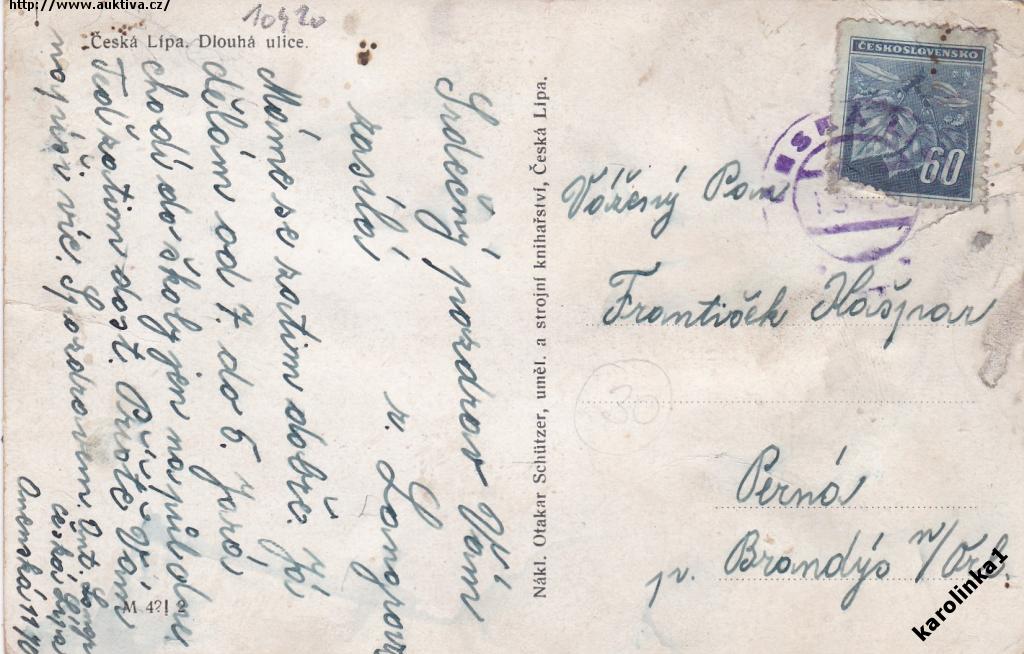 http://www.auktiva.cz/
10420
Česká Lípa. Dlouhá ulice.
Srdečný pozdrav Vám
zasílá
r. Langrova
Máme se zatim dobře. Já
dělám od 7. do 5. Jará
chodí do školy jen na půl dne
Teď zatim dost. Příště Vám
napíši víc. S pozdravem Ant. Langr
Česká Lípa
M 421 2
Nákl. Otakar Schützer, uměl. a strojní knihařství, Česká Lípa.
ČESKOSLOVENSKO
60
Vážený Pan
František Kašpar
30
Perná
p. Brandýs n/Orl.
karolinka1